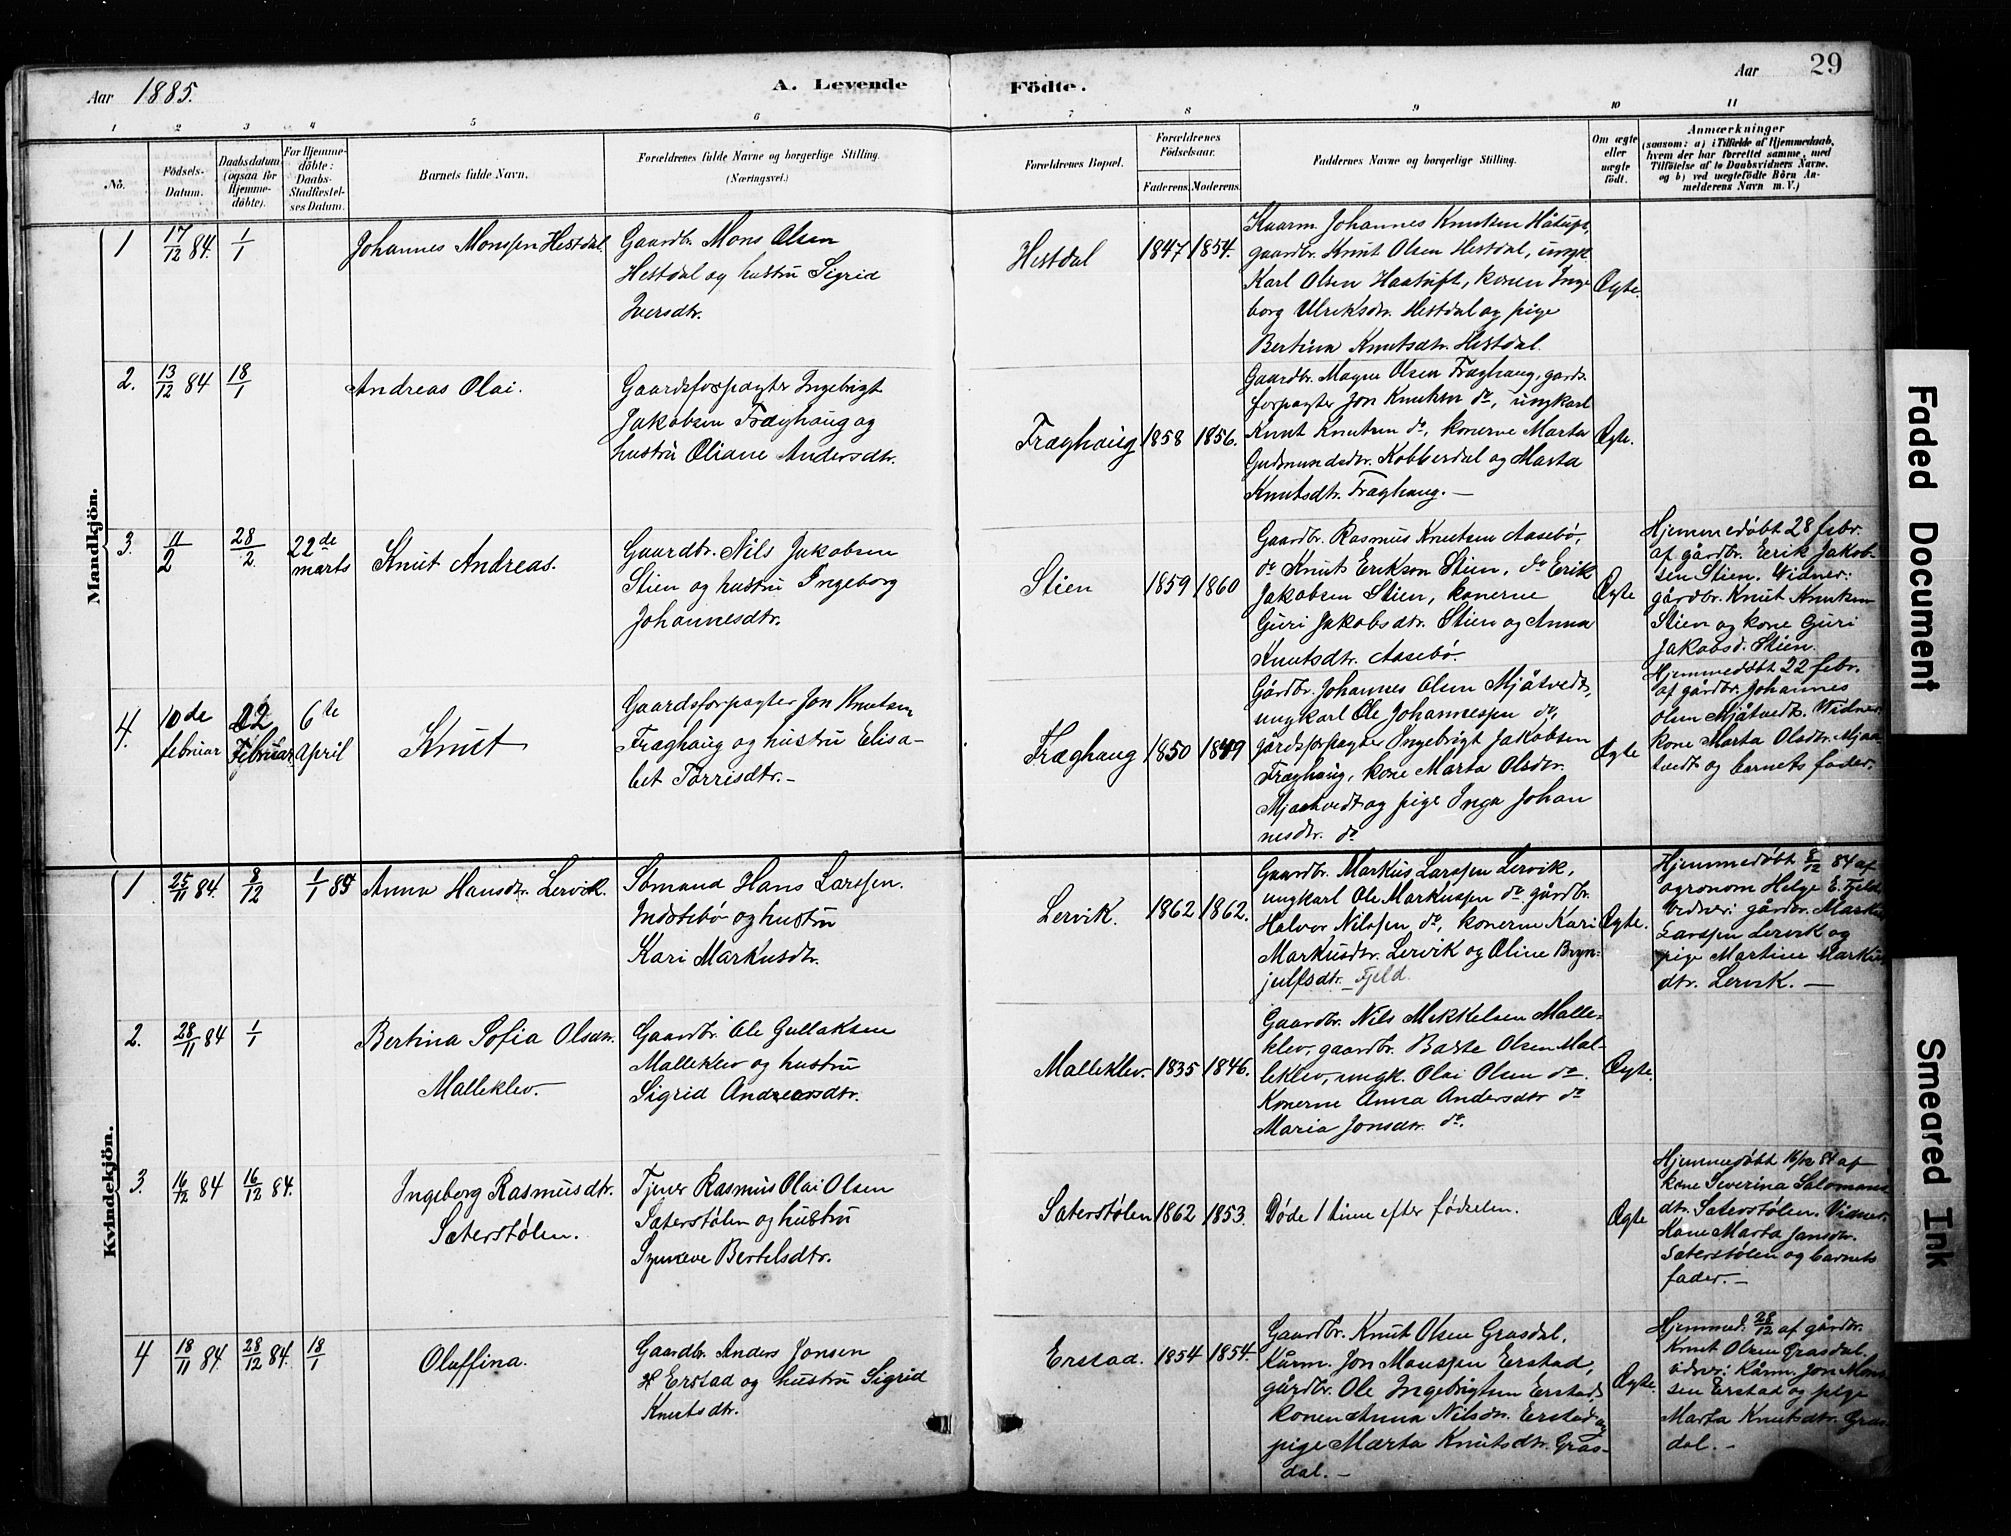 29
Aar 1885.
A. Levende
Födte.
Aar
1
2
3
4
5
6
7
8
9
10
11
No.
Födsels-
Datum.
Daabsdatum
(ogsaa for
Hjemme-
döbte).
For Hjemme-
döbte:
Daabs-
Stadfæstel-
ses Datum.
Barnets fulde Navn.
Forældrenes fulde Navne og borgerlige Stilling.
(Næringsvei.)
Forældrenes Bopæl.
Forældrenes
Födselsaar.
Faderens.
Moderens.
Faddernes Navne og borgerlige Stilling.
Om ægte
eller
uægte
födt.
Anmærkninger
(saasom: a) i Tilfælde af Hjemmedaab,
hvem der har forrettet samme, med
Tilföielse af to Daabsvidners Navne.
og b) ved uægtefödte Börn An-
melderens Navn m. V.)
Mandkjön.
1
17/12 84.
1/1
Johannes Monssen Hestdal.
Gaardbr. Mons Olsen
Hestdal og hustru Sigrid
Iversdtr.
Hestdal
1847
1854.
Kaarm. Johannes Knutsen Håtuft,
gaardbr. Knut Olsen Hestdal, ungk.
Karl Olsen Haatuft, konen Inge
borg Ulriksdr. Hestdal og pige
Bertina Knutsdtr. Hestdal.
Ægte.
2.
13/12 84
18/1
Andreas Olai.
Gaardsforpagter Ingebrigt
Jakobsen Fræghaug og
hustru Oliane Andersdtr.
Fræghaug
1858
1856.
Gaardbr. Magne Olsen Fræghaug, gards
forpagter Jon Knutsen do, ungkarl
Knut Knutsen do, konerne Marta
Gudmundsdtr. Kobberdal og Marta
Knutsdtr. Fræghaug. —
Ægte.
3.
11/2
28/2
22de
marts
Knut Andreas.
Gaardbr. Nils Jakobsen
Stien og hustru Ingeborg
Johannesdtr.
Stien
1859
1860
Gaardbr. Rasmus Knutsen Aasebø,
do Knut Erikson Stien, do Erik
Jakobsen Stien, konerne
Guri Jakobsdtr. Stien og Anna
Knutsdtr. Aasebø.
Ægte
Hjemmedøbt 28 febr.
af gårdbr. Erik Jakob-
sen Stien. Widner:
gårdbr. Knut Knutsen
Stien og kone Guri
Jakobsd. Stien.
4.
10de
februar
22
Februar
6te
April
Knut
Gaardsforpagter Jon Knutsen
Fræghaug og hustru Elisa-
bet Torrisdtr. —
Fræghaug
1850
1849
Gårdbr. Johannes Olsen Mjåtvedt,
ungkarl Ole Johannessen do,
gårdsforpagter Ingebrigt Jakobsen
Fræghaug, kone Marta Olsdtr.
Mjaatvedt og pige Inga Johan
nesdtr. do
Ægte
Hjemmedøbt 22 febr.
af gårdbr. Johannes
Olsen Mjåtvedt. Widner:
kone Marta Olsdtr. Mjaa-
tvedt og barnets fader.
Kvindekjön.
1
25/11 84.
8/12
1/1 85
Anna Hansdtr. Lervik.
Sømand Hans Larssen.
Indstebø og hustru
Kari Markusdtr.
Lervik.
1862
1862.
Gaardbr. Markus Larssen Lervik,
ungkarl Ole Markussen do gårdbr.
Halvor Nilssen do, konerne Kari
Markusdtr. Lervik og Oline Bryn-
julfsdtr. Fjeld.
Ægte.
Hjemmedøbt 8/12 84 af
agronom Helge E. Fjeld.
Vidner: gårdbr. Markus
Larssen Lervik og
pige Martine Markus
dtr. Lervik. —
2.
28/11 84
1/1
Bertina Sofia Olsdtr.
Malleklev.
Gaardbr. Ole Gullaksen
Malleklev og hustru
Sigrid Andreasdtr.
Malleklev.
1835
1846.
Gaardbr. Nils Mikkelsen Malle-
klev, gaardbr. Baste Olsen Mal-
leklev, ungk. Olai Olsen do.
Konerne Anna Andersdtr do
Maria Jonsdtr. do.
Ægte.
3.
16/12 84
16/12 84.
Ingeborg Rasmusdtr.
Sæterstølen.
Tjener Rasmus Olai Olsen
Sæterstølen og hustru
Synneve Bertelsdtr.
Sæterstølen
1862
1853.
Døde 1 time efter fødselen.
Ægte
Hjemmedøbt 16/12 84 af
kone Severina Salomons
dtr. Sæterstølen. Vidner.
Kone Marta Jansdtr.
Sæterstølen og barnets
fader. —
4
18/11 84.
28/12 84.
18/1
Oluffina.
Gaardbr. Anders Jonsen
Erstad og hustru Sigrid
Knutsdtr.
Erstad.
1854
1854.
Gaardbr. Knut Olsen Grasdal,
Kårm. Jon Monssen Erstad,
gårdbr. Ole Ingebrigtsen Erstad,
konen Anna Nilsdtr. Erstad og
pige Marta Knutsdtr. Gras-
dal. —
Ægte.
Hjemmed. 28/12 af gårdbr.
Knut Olsen Grasdal.
vidner: Kårm. Jon Mons
sen Erstad og pige
Marta Knutsdtr. Gras
dal. —
Faded Document
Smeared Ink